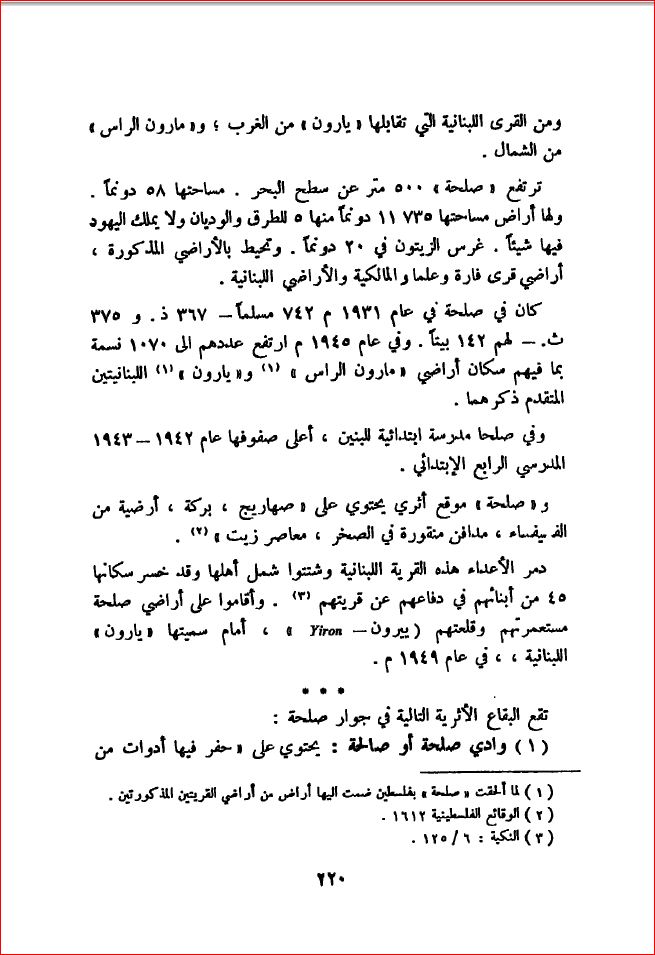 ومن القرى اللبنانية التي تقابلها « يارون » من الغرب ؛ و« مارون الراس »
من الشمال .
ترتفع « صلحة » ٥٠٠ متر عن سطح البحر . مساحتها ٥٨ دونماً .
ولها أراض مساحتها ٧٣٥ ١١ دونماً منها ٥ للطرق والوديان ولا يملك اليهود
فيها شيئاً . غرس الزيتون في ٢٠ دونماً . وتحيط بالأراضي المذكورة ،
أراضي قرى فارة وعلما والمالكية والأراضي اللبنانية .
كان في صلحة في عام ١٩٣١ م ٧٤٢ مسلماً – ٣٦٧ ذ. و ٣٧٥
ث. – لهم ١٤٢ بيتاً . وفي عام ١٩٤٥ م ارتفع عددهم الى ١٠٧٠ نسمة
بما فيهم سكان أراضي « مارون الراس » (١) و« يارون » (١) اللبنانيتين
المتقدم ذكرهما .
وفي صلحا مدرسة ابتدائية للبنين ، أعلى صفوفها عام ١٩٤٢ – ١٩٤٣
المدرسي الرابع الإبتدائي .
و « صلحة » موقع أثري يحتوي على « صهاريج ، بركة ، أرضية من
الفسيفساء ، مدافن منقورة في الصخر ، معاصر زيت » (٢) .
دمر الأعداء هذه القرية اللبنانية وشتتوا شمل أهلها وقد خسر سكانها
٤٥ من أبنائهم في دفاعهم عن قريتهم (٣) . وأقاموا على أراضي صلحة
مستعمرتهم وقلعتهم ( ييرون – Yiron » ، أمام سميتها « يارون »
اللبنانية ، ، في عام ١٩٤٩ م .
* * *
تقع البقاع الأثرية التالية في جوار صلحة :
( ١ ) وادي صلحة أو صالحة : يحتوي على « حفر فيها أدوات من
( ١ ) لما ألحقت « صلحة » بفلسطين ضمت اليها أراض من أراضي القريتين المذكورتين .
( ٢ ) الوقائع الفلسطينية ١٦١٢ .
( ٣ ) النكبة : ٦ / ١٢٥ .
٢٢٠